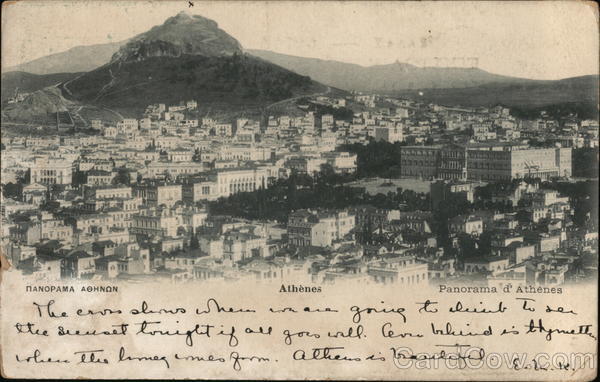 ΠΑΝΟΡΑΜΑ ΑΘΗΝΩΝ
Athènes
Panorama d'Athènes
The cross shows where we are going to climb to see
the sunset tonight if all goes well. behind is Hymettus
where the honey comes from. Athens is beautiful.
CardCow.com